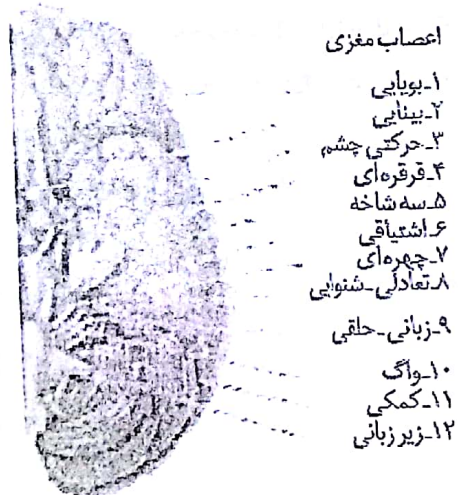 اعصاب مغزی
۱ـ بویایی
۲ـ بینایی
۳ـ حرکتی چشم
۴ـ قرقره‌ای
۵ـ سه شاخه
۶ـ اشتیاقی
۷ـ چهره‌ای
۸ـ تعادلی ـ شنوایی
۹ـ زبانی ـ حلقی
۱۰ـ واگ
۱۱ـ کمکی
۱۲ـ زیر زبانی